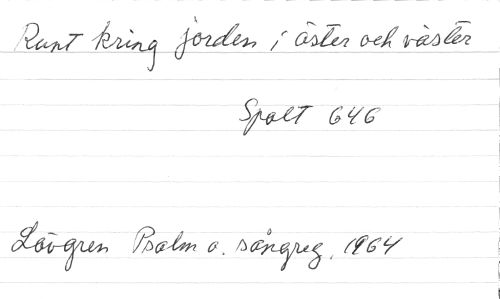 Runt kring jorden i öster och väster
Spalt 646
Lövgren Psalm o. sångreg. 1964